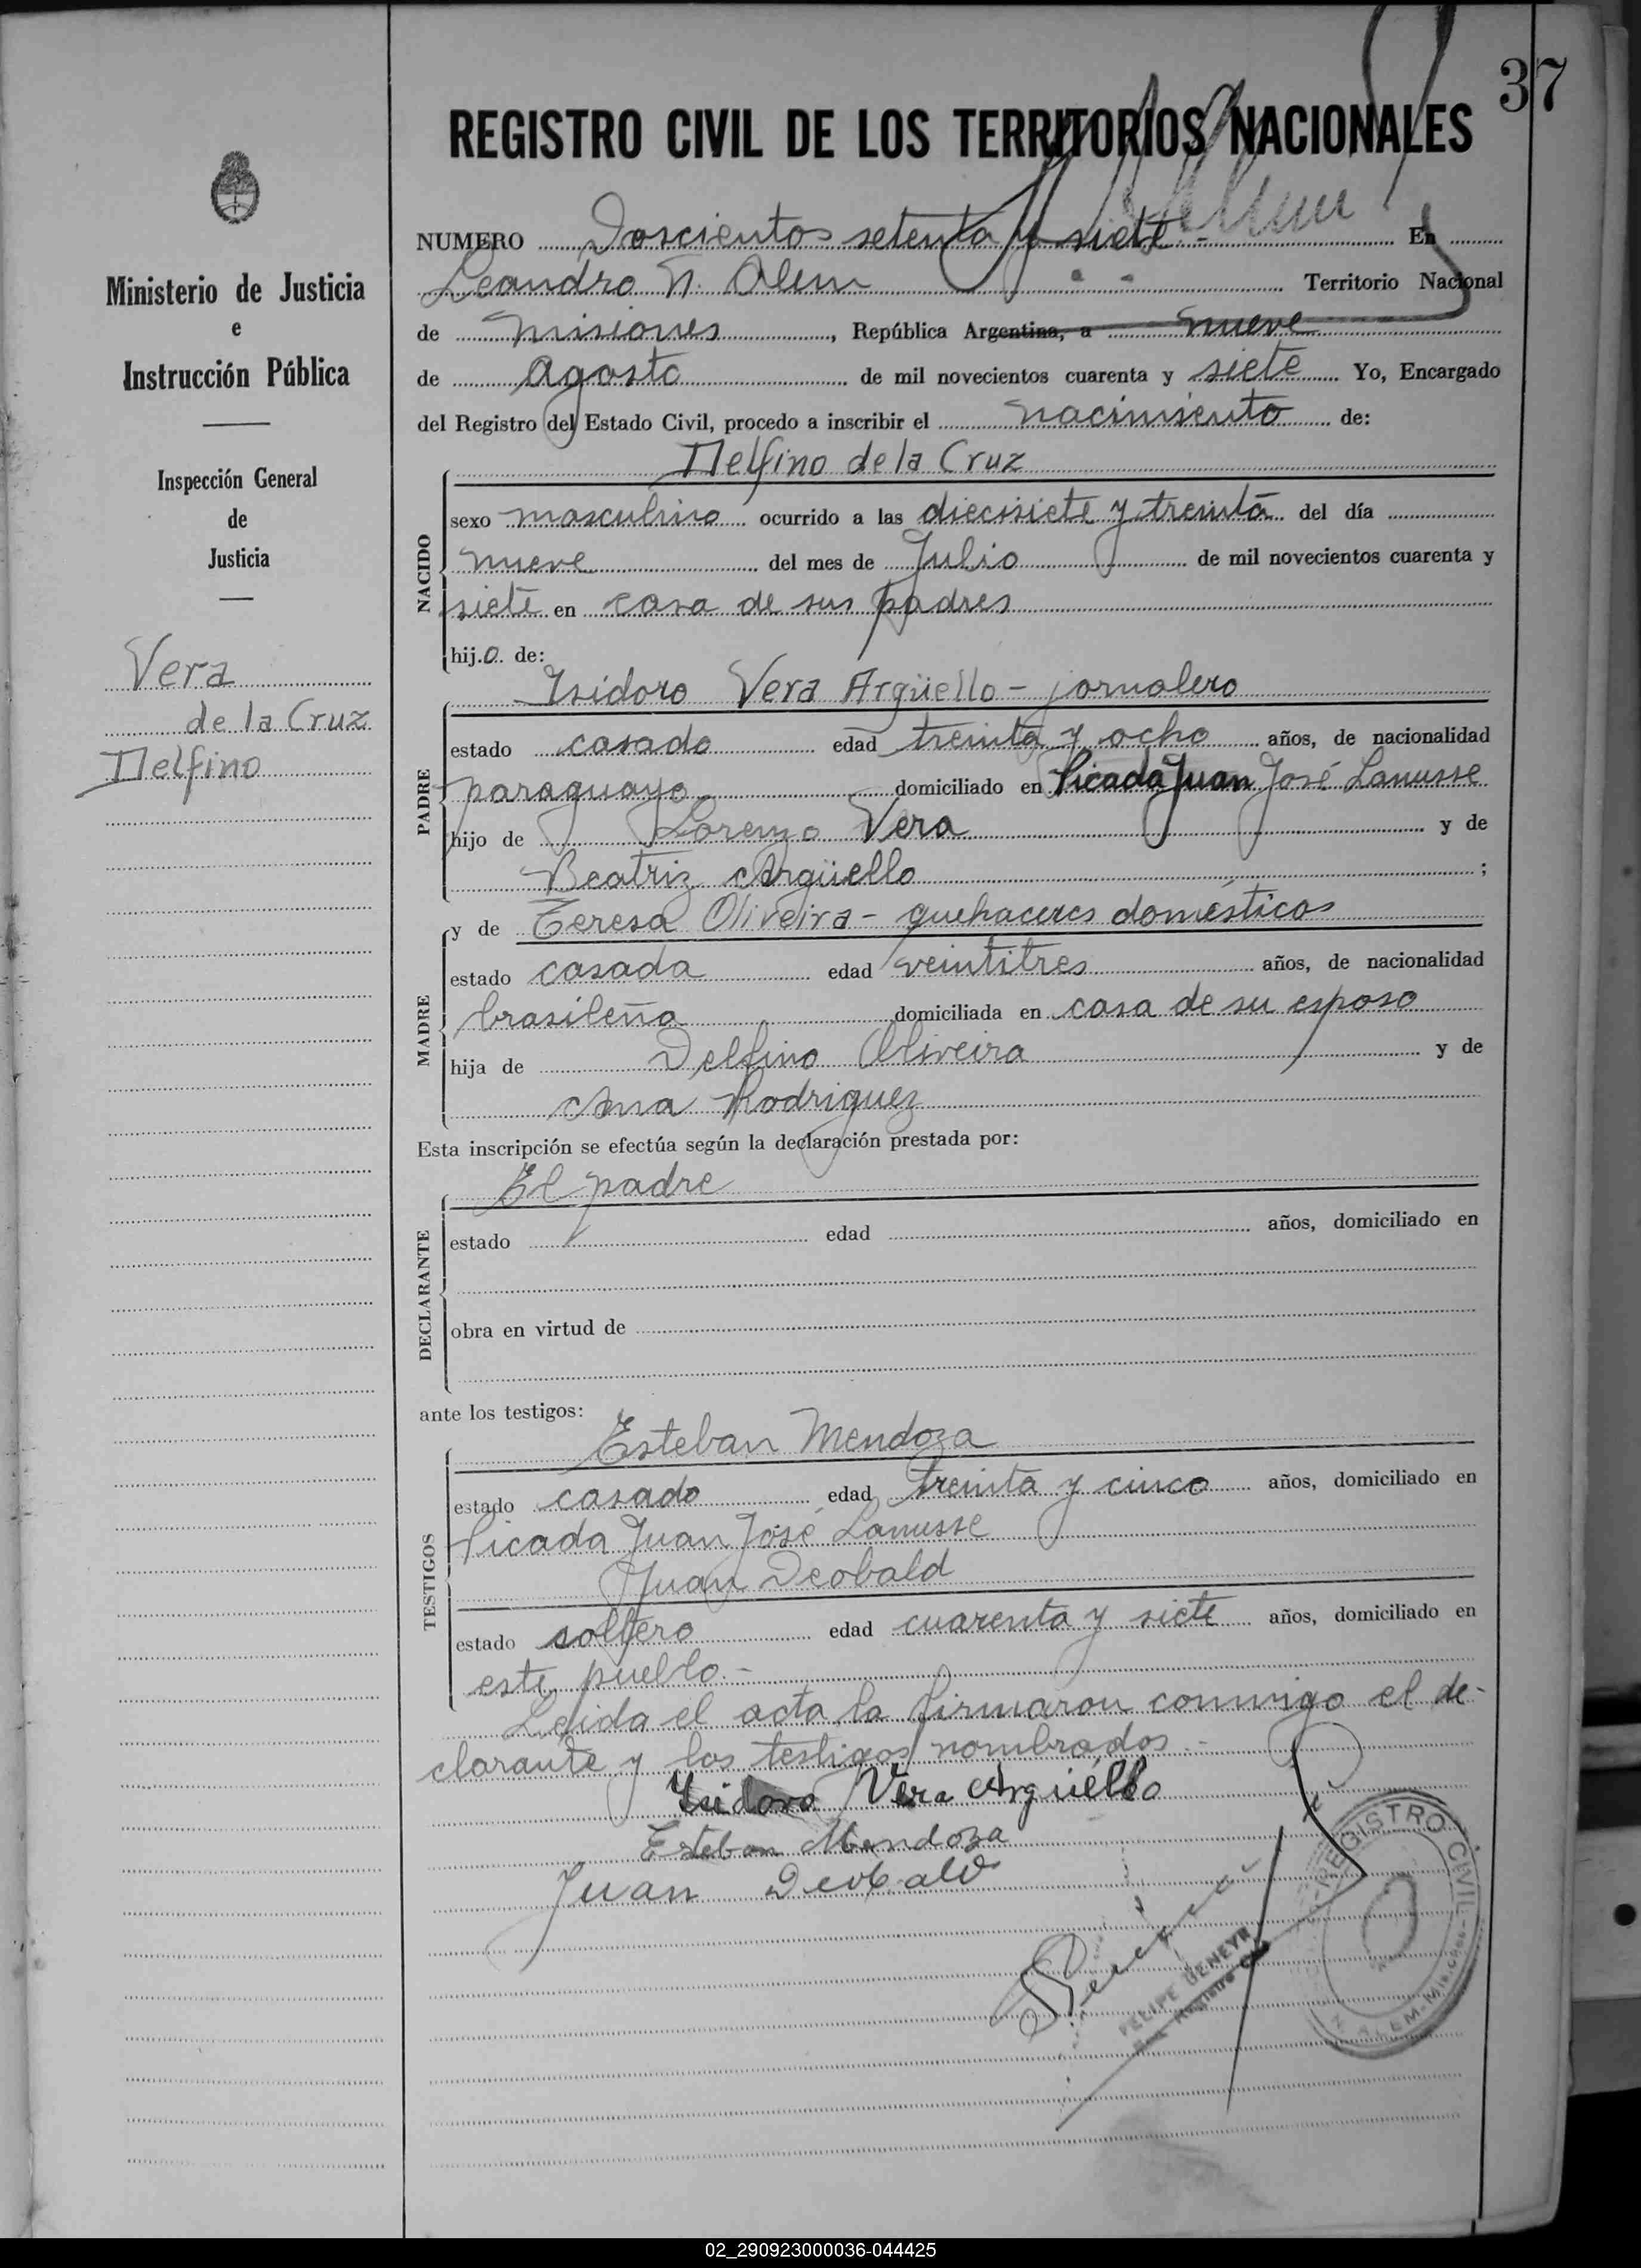 37
REGISTRO CIVIL DE LOS TERRITORIOS NACIONALES
Ministerio de Justicia
e
Instrucción Pública
Inspección General
de
Justicia
Vera
de la Cruz
Delfino
NUMERO Doscientos setenta y siete.- En
Leandro N. Alem Territorio Nacional
de Misiones, República Argentina, a nueve
de Agosto de mil novecientos cuarenta y siete Yo, Encargado
del Registro del Estado Civil, procedo a inscribir el nacimiento de:
Delfino de la Cruz
NACIDO
sexo masculino ocurrido a las diecisiete y treinta del día
nueve del mes de Julio de mil novecientos cuarenta y
siete en casa de sus padres
hijo de:
Isidoro Vera Argüello - jornalero
PADRE
estado casado edad treinta y ocho años, de nacionalidad
paraguayo domiciliado en Picada Juan José Lanusse
hijo de Lorenzo Vera y de
Beatriz Argüello;
y de Teresa Oliveira - quehaceres domésticos
MADRE
estado casada edad veintitres años, de nacionalidad
brasileña domiciliada en casa de su esposo
hija de Delfino Oliveira y de
Ana Rodriguez
Esta inscripción se efectúa según la declaración prestada por:
El padre
DECLARANTE
estado edad años, domiciliado en
obra en virtud de
ante los testigos:
Esteban Mendoza
TESTIGOS
estado casado edad treinta y cinco años, domiciliado en
Picada Juan José Lanusse
Juan Deobald
estado soltero edad cuarenta y siete años, domiciliado en
este pueblo.-
Leida el acta la firmaron conmigo el de-
clarante y los testigos nombrados.-
Isidoro Vera Argüello
Esteban Mendoza
Juan Deobald
FELIPE BENEYR
REGISTRO CIVIL
N. ALEM-Misiones
02_290923000036-044425